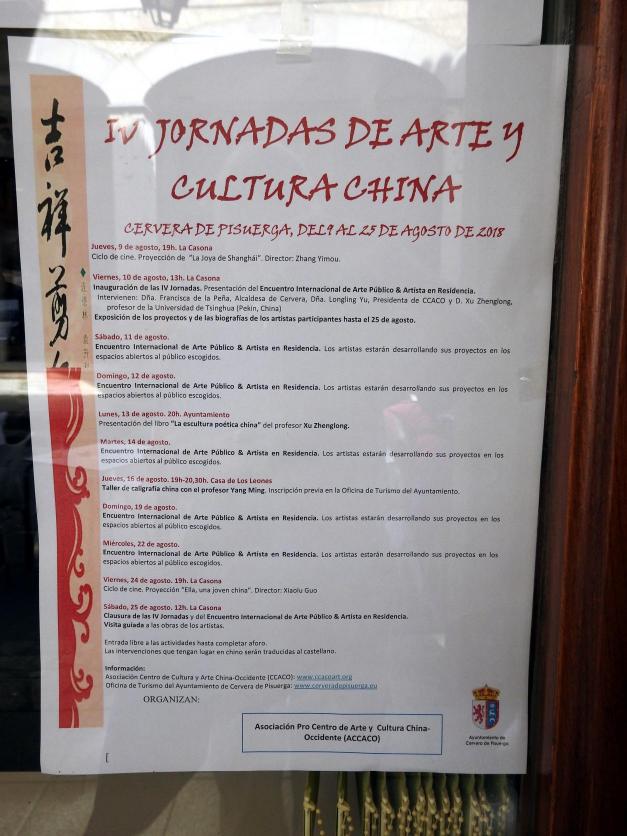 IV JORNADAS DE ARTE Y
CULTURA CHINA
CERVERA DE PISUERGA, DEL 9 AL 25 DE AGOSTO DE 2018
吉祥剪
Jueves, 9 de agosto, 19h. La Casona
Ciclo de cine. Proyección de "La Joya de Shanghái". Director: Zhang Yimou.
Viernes, 10 de agosto, 13h. La Casona
Inauguración de las IV Jornadas. Presentación del Encuentro Internacional de Arte Público & Artista en Residencia.
Intervienen: Dña. Francisca de la Peña, Alcaldesa de Cervera, Dña. Longling Yu, Presidenta de CCACO y D. Xu Zhenglong,
profesor de la Universidad de Tsinghua (Pekín, China)
Exposición de los proyectos y de las biografías de los artistas participantes hasta el 25 de agosto.
Sábado, 11 de agosto.
Encuentro Internacional de Arte Público & Artista en Residencia. Los artistas estarán desarrollando sus proyectos en los
espacios abiertos al público escogidos.
Domingo, 12 de agosto.
Encuentro Internacional de Arte Público & Artista en Residencia. Los artistas estarán desarrollando sus proyectos en los
espacios abiertos al público escogidos.
Lunes, 13 de agosto. 20h. Ayuntamiento
Presentación del libro "La escultura poética china" del profesor Xu Zhenglong.
Martes, 14 de agosto.
Encuentro Internacional de Arte Público & Artista en Residencia. Los artistas estarán desarrollando sus proyectos en los
espacios abiertos al público escogidos.
Jueves, 16 de agosto. 19h-20,30h. Casa de Los Leones
Taller de caligrafía china con el profesor Yang Ming. Inscripción previa en la Oficina de Turismo del Ayuntamiento.
Domingo, 19 de agosto.
Encuentro Internacional de Arte Público & Artista en Residencia. Los artistas estarán desarrollando sus proyectos en los
espacios abiertos al público escogidos.
Miércoles, 22 de agosto.
Encuentro Internacional de Arte Público & Artista en Residencia. Los artistas estarán desarrollando sus proyectos en los
espacios abiertos al público escogidos.
Viernes, 24 de agosto. 19h. La Casona
Ciclo de cine. Proyección "Ella, una joven china". Director: Xiaolu Guo
Sábado, 25 de agosto. 12h. La Casona
Clausura de las IV Jornadas y del Encuentro Internacional de Arte Público & Artista en Residencia.
Visita guiada a las obras de los artistas.
Entrada libre a las actividades hasta completar aforo.
Las intervenciones que tengan lugar en chino serán traducidas al castellano.
Información:
Asociación Centro de Cultura y Arte China-Occidente (CCACO): www.ccacoart.org
Oficina de Turismo del Ayuntamiento de Cervera de Pisuerga: www.cerveradepisuerga.eu
ORGANIZAN:
Asociación Pro Centro de Arte y Cultura China-
Occidente (ACCACO)
Ayuntamiento de
Cervera de Pisuerga
[